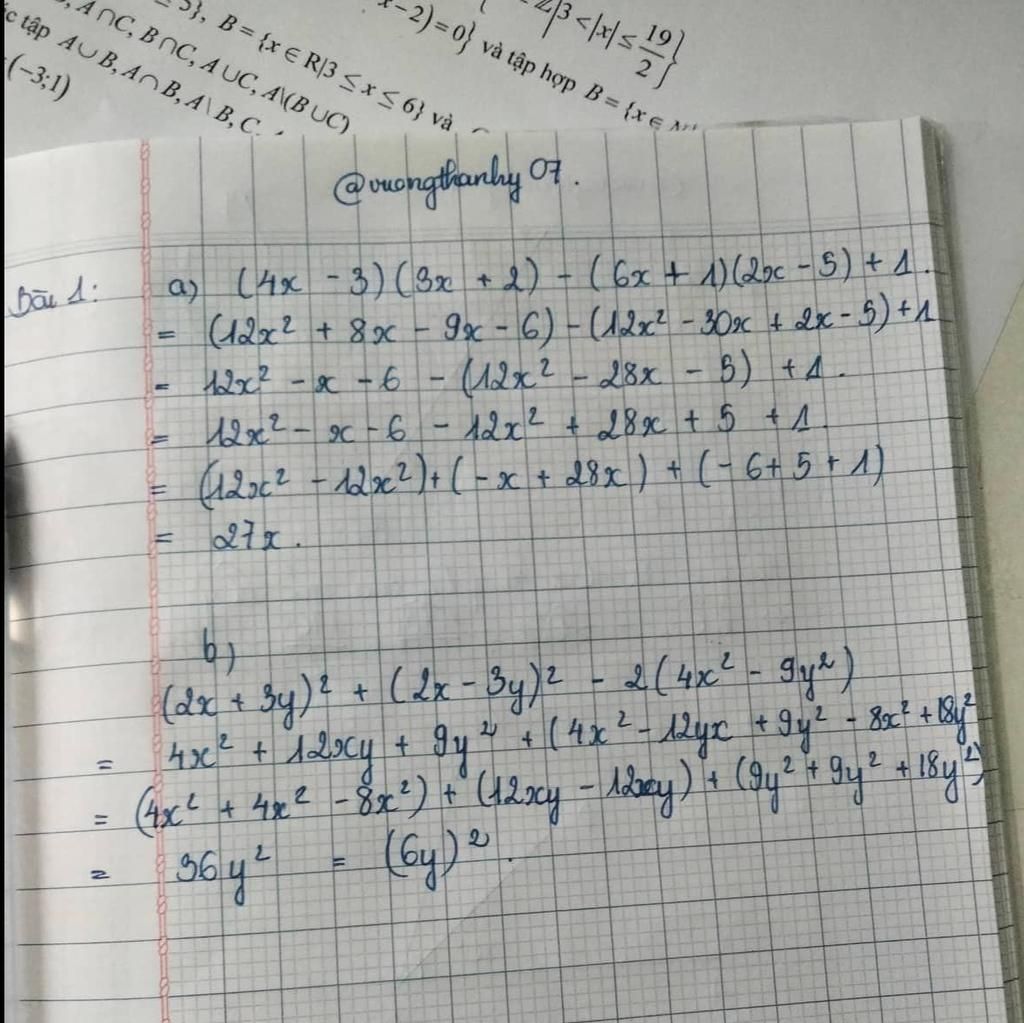 ≤ 5}, B = {x ∈ R|3 ≤ x ≤ 6} và
A∩C, B∩C, A∪C, A\(B∪C)
tập A∪B, A∩B, A\B, C
(-3;1)
x-2)=0} và tập hợp B = {x ∈
|3 < |x| ≤ 19/2}
@vuongthanhy 07.
Bài 1: a) (4x - 3)(3x + 2) - (6x + 1)(2x - 5) + 1.
= (12x² + 8x - 9x - 6) - (12x² - 30x + 2x - 5) + 1
= 12x² - x - 6 - (12x² - 28x - 5) + 1.
= 12x² - x - 6 - 12x² + 28x + 5 + 1.
= (12x² - 12x²) + (-x + 28x) + (-6 + 5 + 1)
= 27x.
b)
(2x + 3y)² + (2x - 3y)² - 2(4x² - 9y²)
= 4x² + 12xy + 9y² + (4x² - 12yx + 9y² - 8x² + 18y²
= (4x² + 4x² - 8x²) + (12xy - 12xy) + (9y² + 9y² + 18y²)
= 36y² = (6y)².